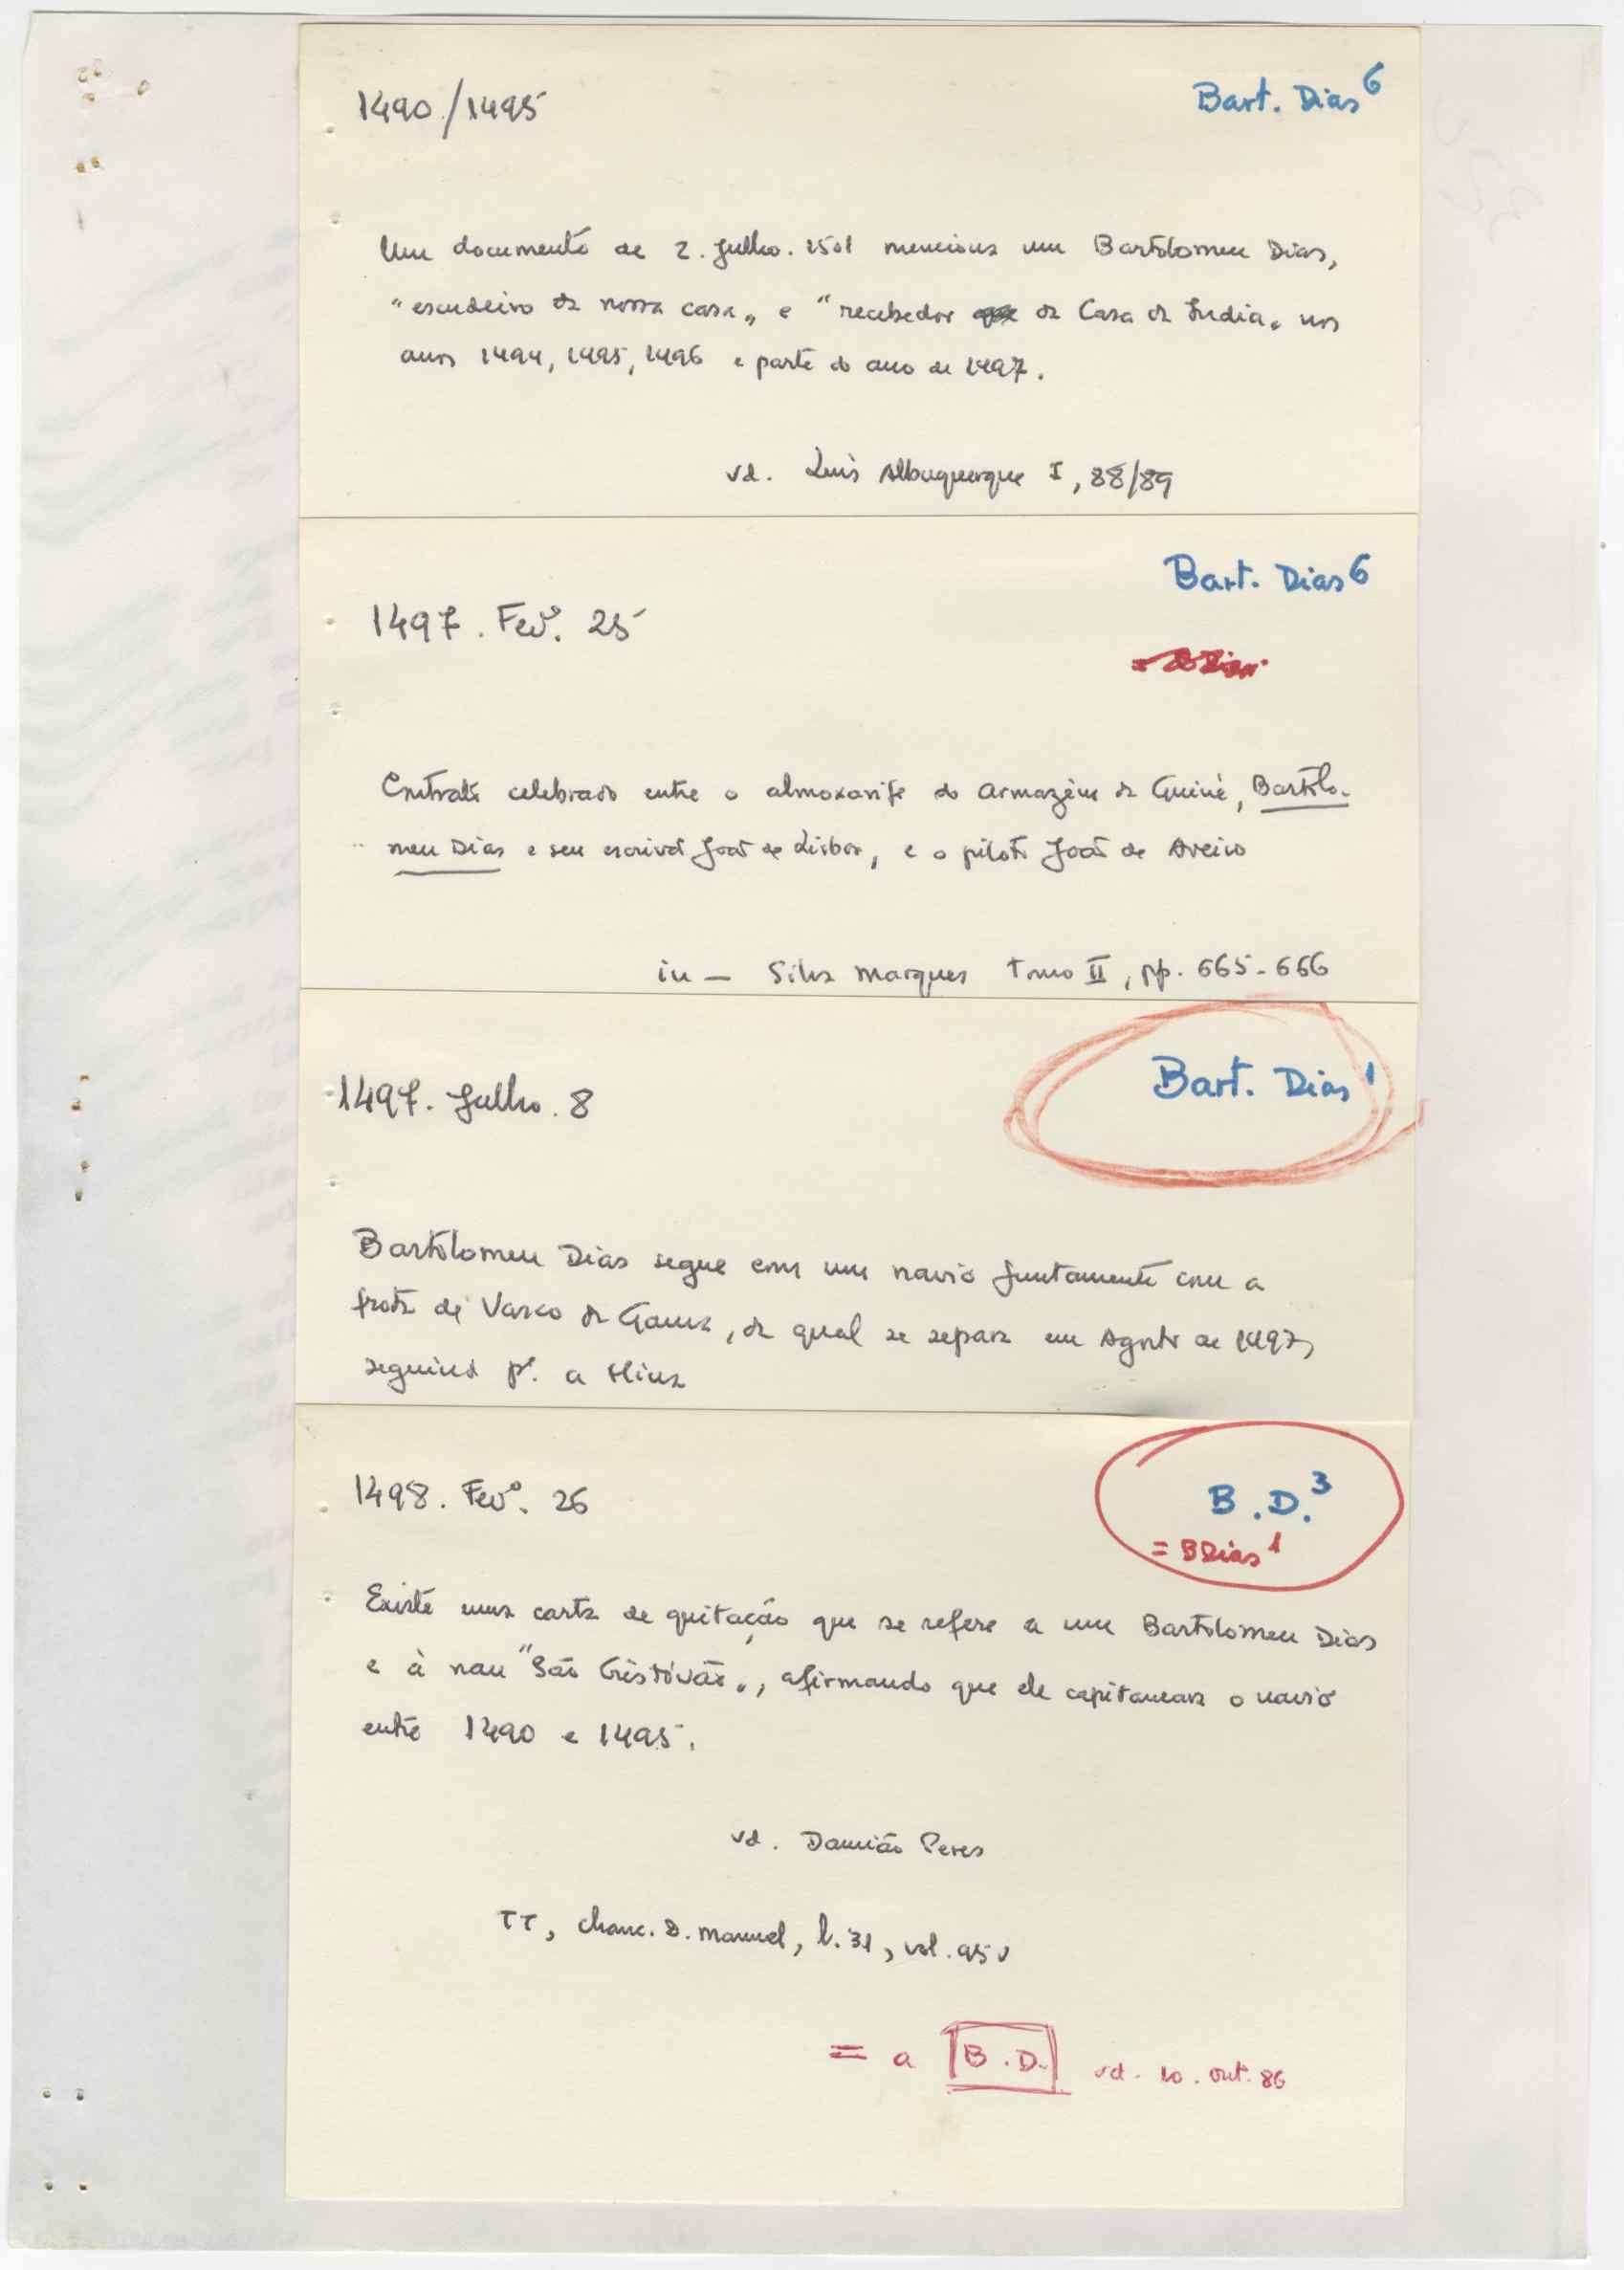 1490/1495
Bart. Dias 6
Um documento de 2. Julho. 1501 menciona um Bartolomeu Dias,
"escudeiro da nossa casa" e "recebedor da Casa da India" nos
anos 1494, 1495, 1496 e parte do ano de 1497.
vd. Luis Albuquerque I, 88/89
Bart. Dias 6
1497. Fevº. 25
Contrato celebrado entre o almoxarife do armazém da Guiné, Bartolo-
meu Dias e seu escrivão João de Lisboa, e o piloto João de Aveiro
in — Silva Marques Tomo II, pp. 665-666
Bart. Dias 1
1497. Julho. 8
Bartolomeu Dias segue com um navio juntamente com a
frota de Vasco da Gama, da qual se separa em Agosto de 1497,
seguindo pª. a Mina
1498. Fevº. 26
B.D. 3
= BDias 1
Existe uma carta de quitação que se refere a um Bartolomeu Dias
e à nau "São Cristóvão", afirmando que ele capitaneara o navio
entre 1490 e 1495.
vd. Damião Peres
TT, chanc. D. Manuel, l. 31, vol. 95v
= a B.D. vd. 10. out. 86